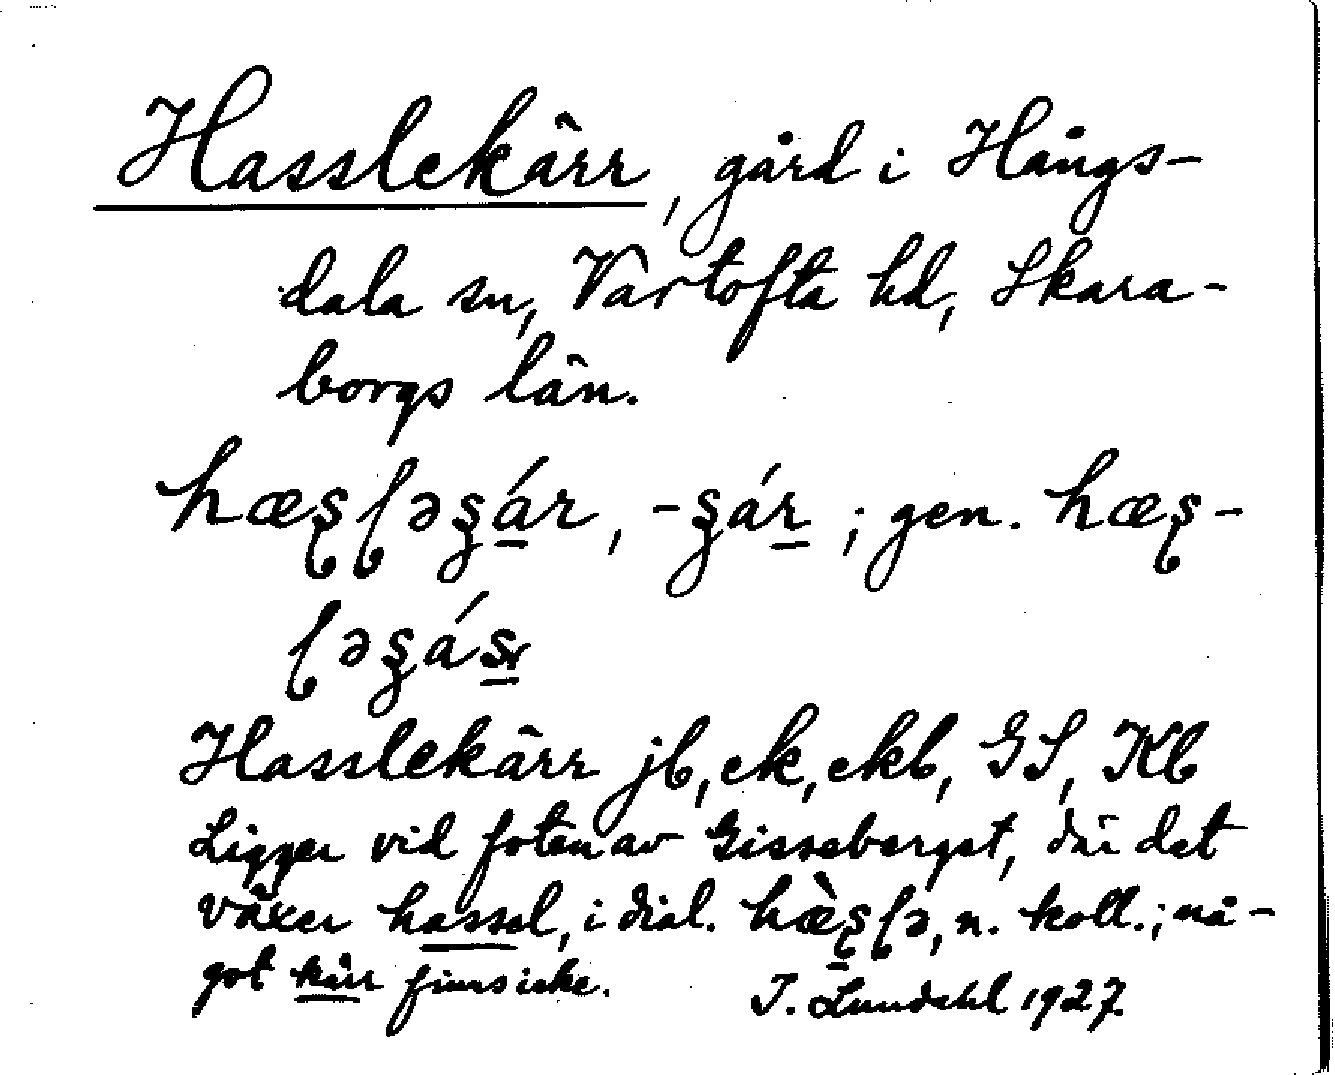 Hasslekärr, gård i Hångs-
dala sn, Vartofta hd, Skara-
borgs län.
; gen.
Hasslekärr jb, ek, ekb, GS, Kb
Ligger vid foten av Gisseberget, där det
växer hassel, i dial. n. koll.; nå-
got kärr finns icke. I. Lundahl 1927.